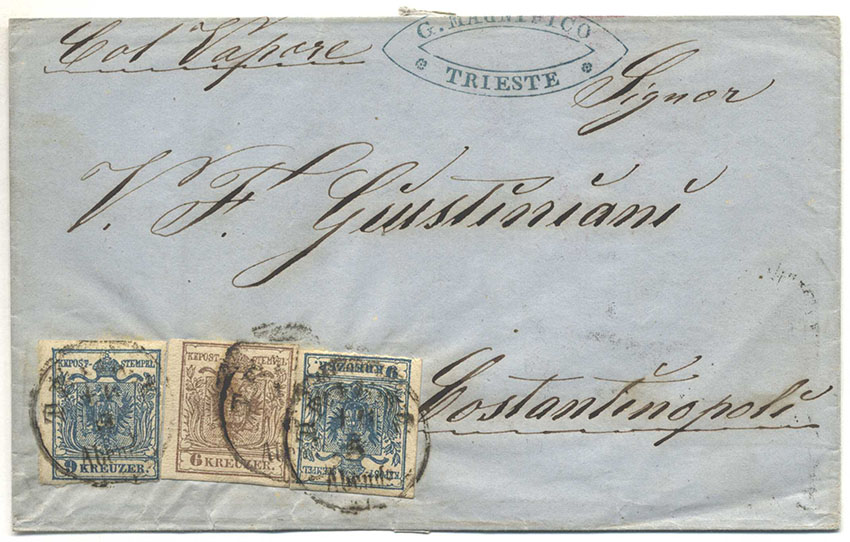 Col Vapore
G. MAGNIFICO
TRIESTE
Signor
V. F. Giustiniani
Costantinopoli
KKPOST-STEMPEL
9 KREUZER.
KKPOST-STEMPEL
6 KREUZER.
9 KREUZER.
KKPOST-STEMPEL
Abends